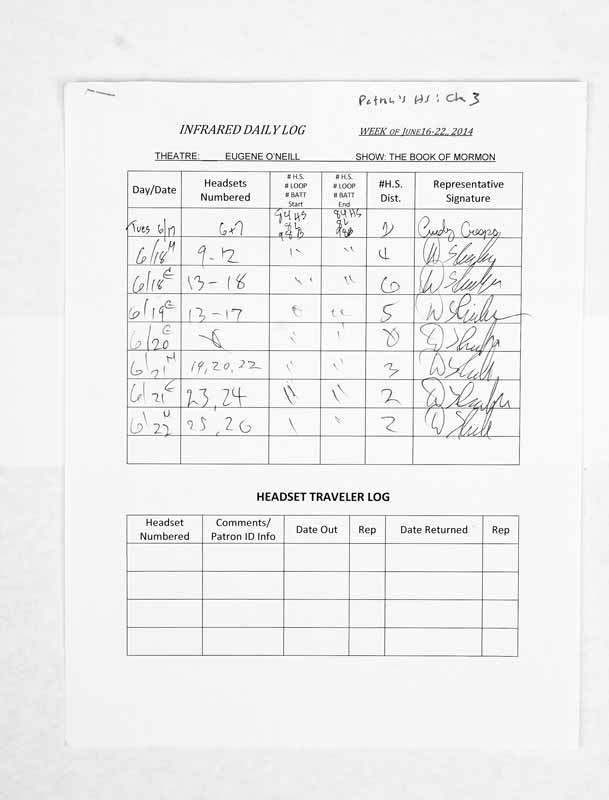 Patron's HS: Ch 3
INFRARED DAILY LOG WEEK OF JUNE16-22, 2014
THEATRE: ___ EUGENE O'NEILL SHOW: THE BOOK OF MORMON
Day/Date Headsets Numbered # H.S. # LOOP # BATT Start # H.S. # LOOP # BATT End #H.S. Dist. Representative Signature
Tues 6/17 84 HS 8L 98B 84 HS 8L 98B 2 Cindy
6/18 M 9-12 " " 4 W
6/18 E 13-18 " " 6 W
6/19 E 13-17 " 5 W
6/20 E " " 0 W
6/21 M 19, 20, 22 " " 3 W
6/21 E 23, 24 " " 2 W
6/22 M 25, 26 " 2 W
HEADSET TRAVELER LOG
Headset Numbered Comments/ Patron ID Info Date Out Rep Date Returned Rep